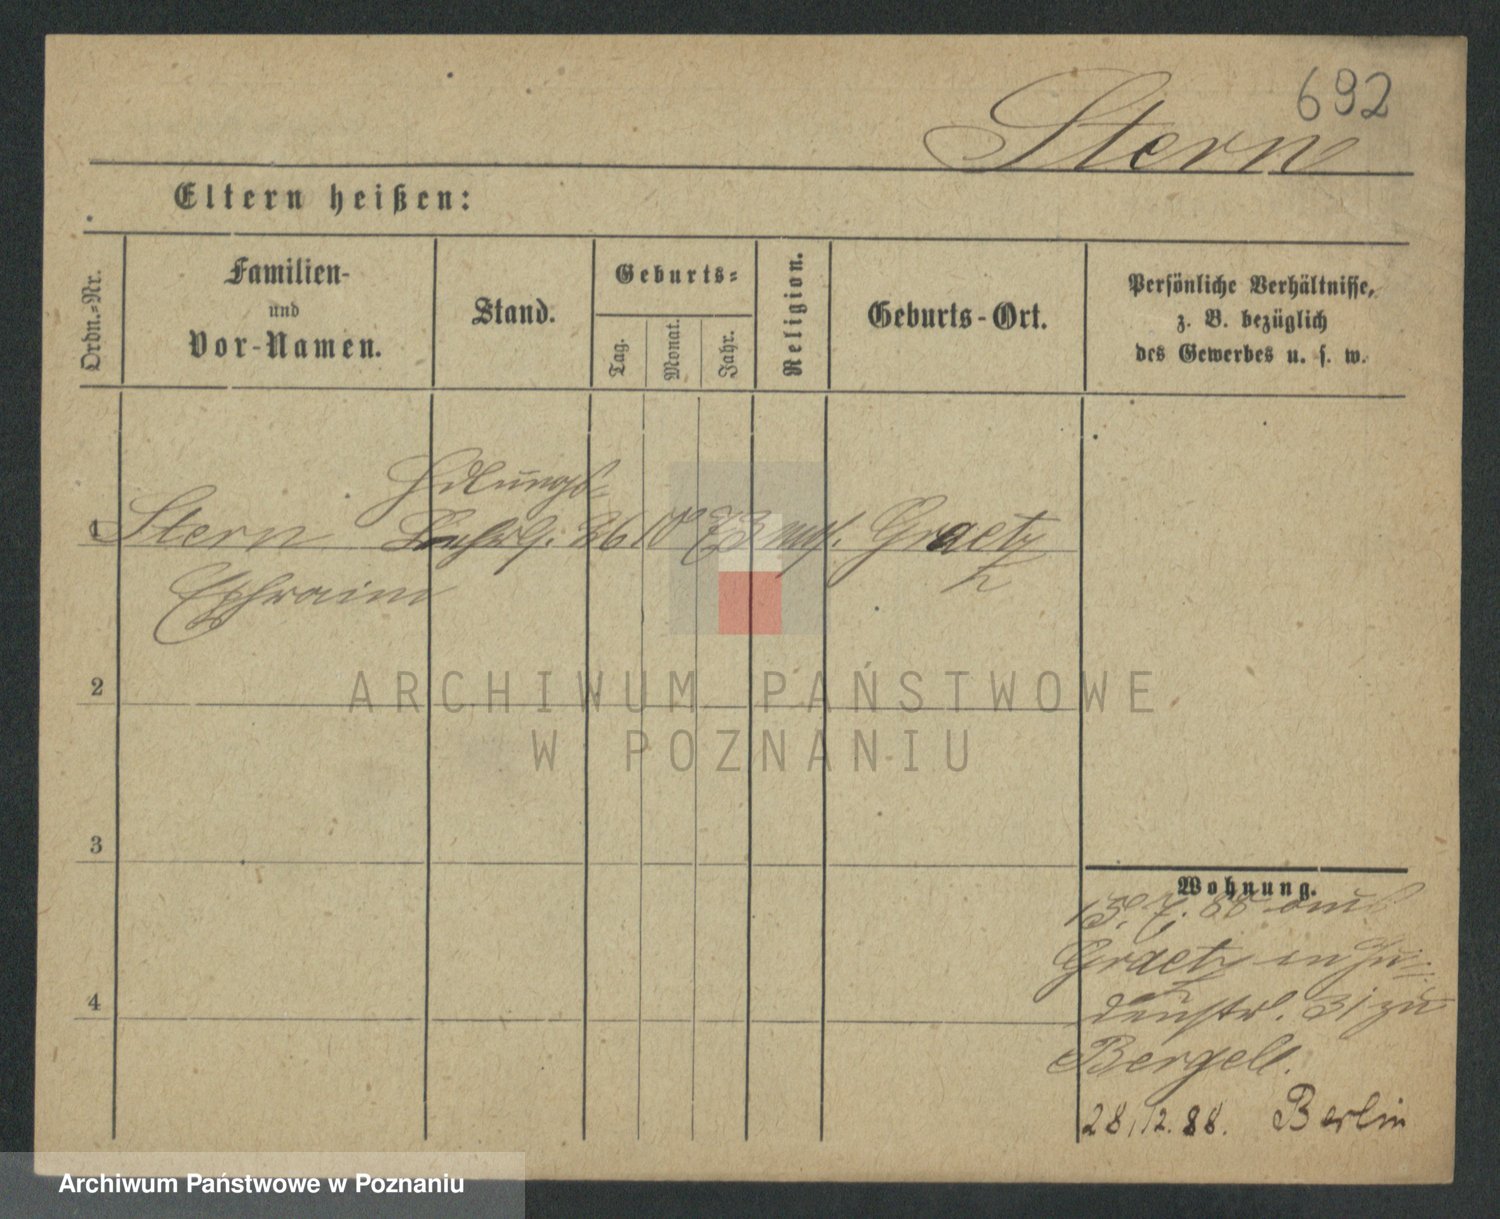 692
Stern
Eltern heißen:
Ordn.-Nr.
Familien-
und
Vor-Namen.
Stand.
Geburts-
Tag.
Monat.
Jahr.
Religion.
Geburts-Ort.
Persönliche Verhältnisse,
z. B. bezüglich
des Gewerbes u. s. w.
1 Stern 26 10 73 mos. Graetz
Ephraim
2
ARCHIWUM PAŃSTWOWE
W POZNANIU
3
Wohnung.
15. 7. 88 aus
Graetz in Ju-
denstr. 31 zu
4
Bergell.
28.12.88. Berlin
Archiwum Państwowe w Poznaniu